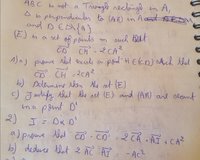 ABC is not a Triangle rectangle in A,
Δ is perpendicular to (AB) in A
and D ∈ Δ\{A}
(E) is a set of points M such that
CD · CM = 2CA²
1) a) prove that exists a point H ∈ (CD) which that
CD · CH = 2CA²
b) Determine then the set (E)
c) Justify that the set (E) and (AB) are secant
in a point D'
2) I = D * D'
a) prove that CD · CD' = 2 CH · AI + CA²
b) deduce that 2 AC · AI = -AC²